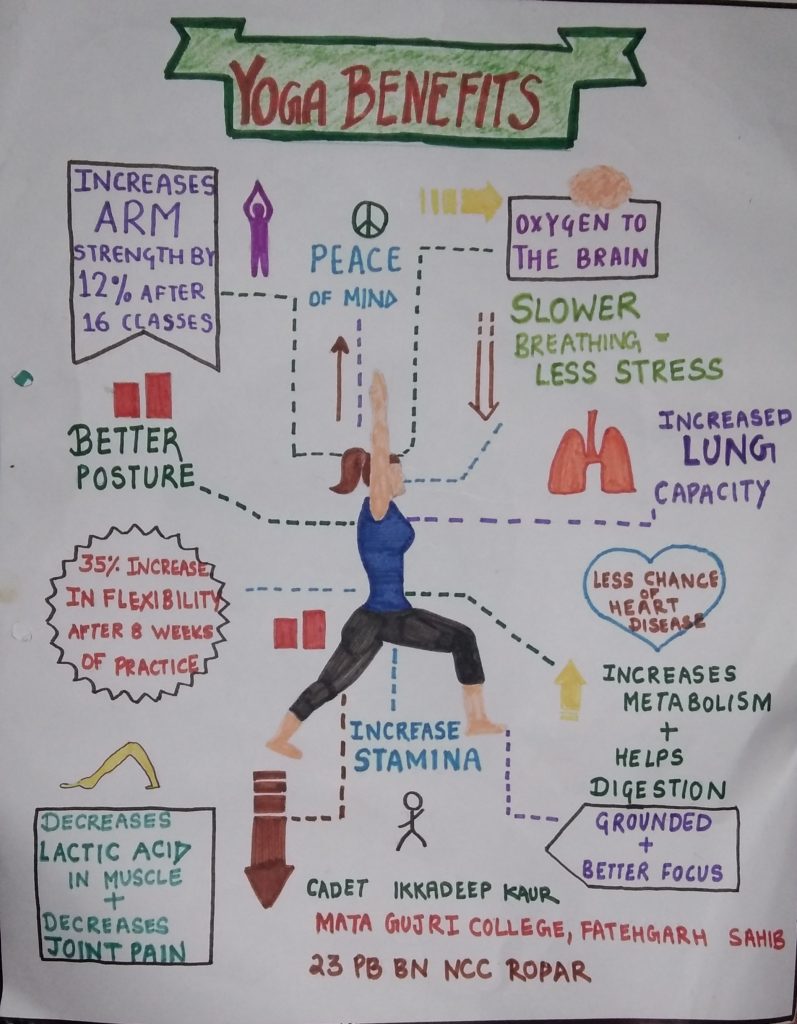 YOGA BENEFITS
INCREASES
ARM
STRENGTH BY
12% AFTER
16 CLASSES
PEACE
OF MIND
OXYGEN TO
THE BRAIN
SLOWER
BREATHING -
LESS STRESS
BETTER
POSTURE
INCREASED
LUNG
CAPACITY
35% INCREASE
IN FLEXIBILITY
AFTER 8 WEEKS
OF PRACTICE
LESS CHANCE
OF
HEART
DISEASE
INCREASES
METABOLISM
+
HELPS
DIGESTION
INCREASE
STAMINA
GROUNDED
+
BETTER FOCUS
DECREASES
LACTIC ACID
IN MUSCLE
+
DECREASES
JOINT PAIN
CADET IKKADEEP KAUR
MATA GUJRI COLLEGE, FATEHGARH SAHIB
23 PB BN NCC ROPAR